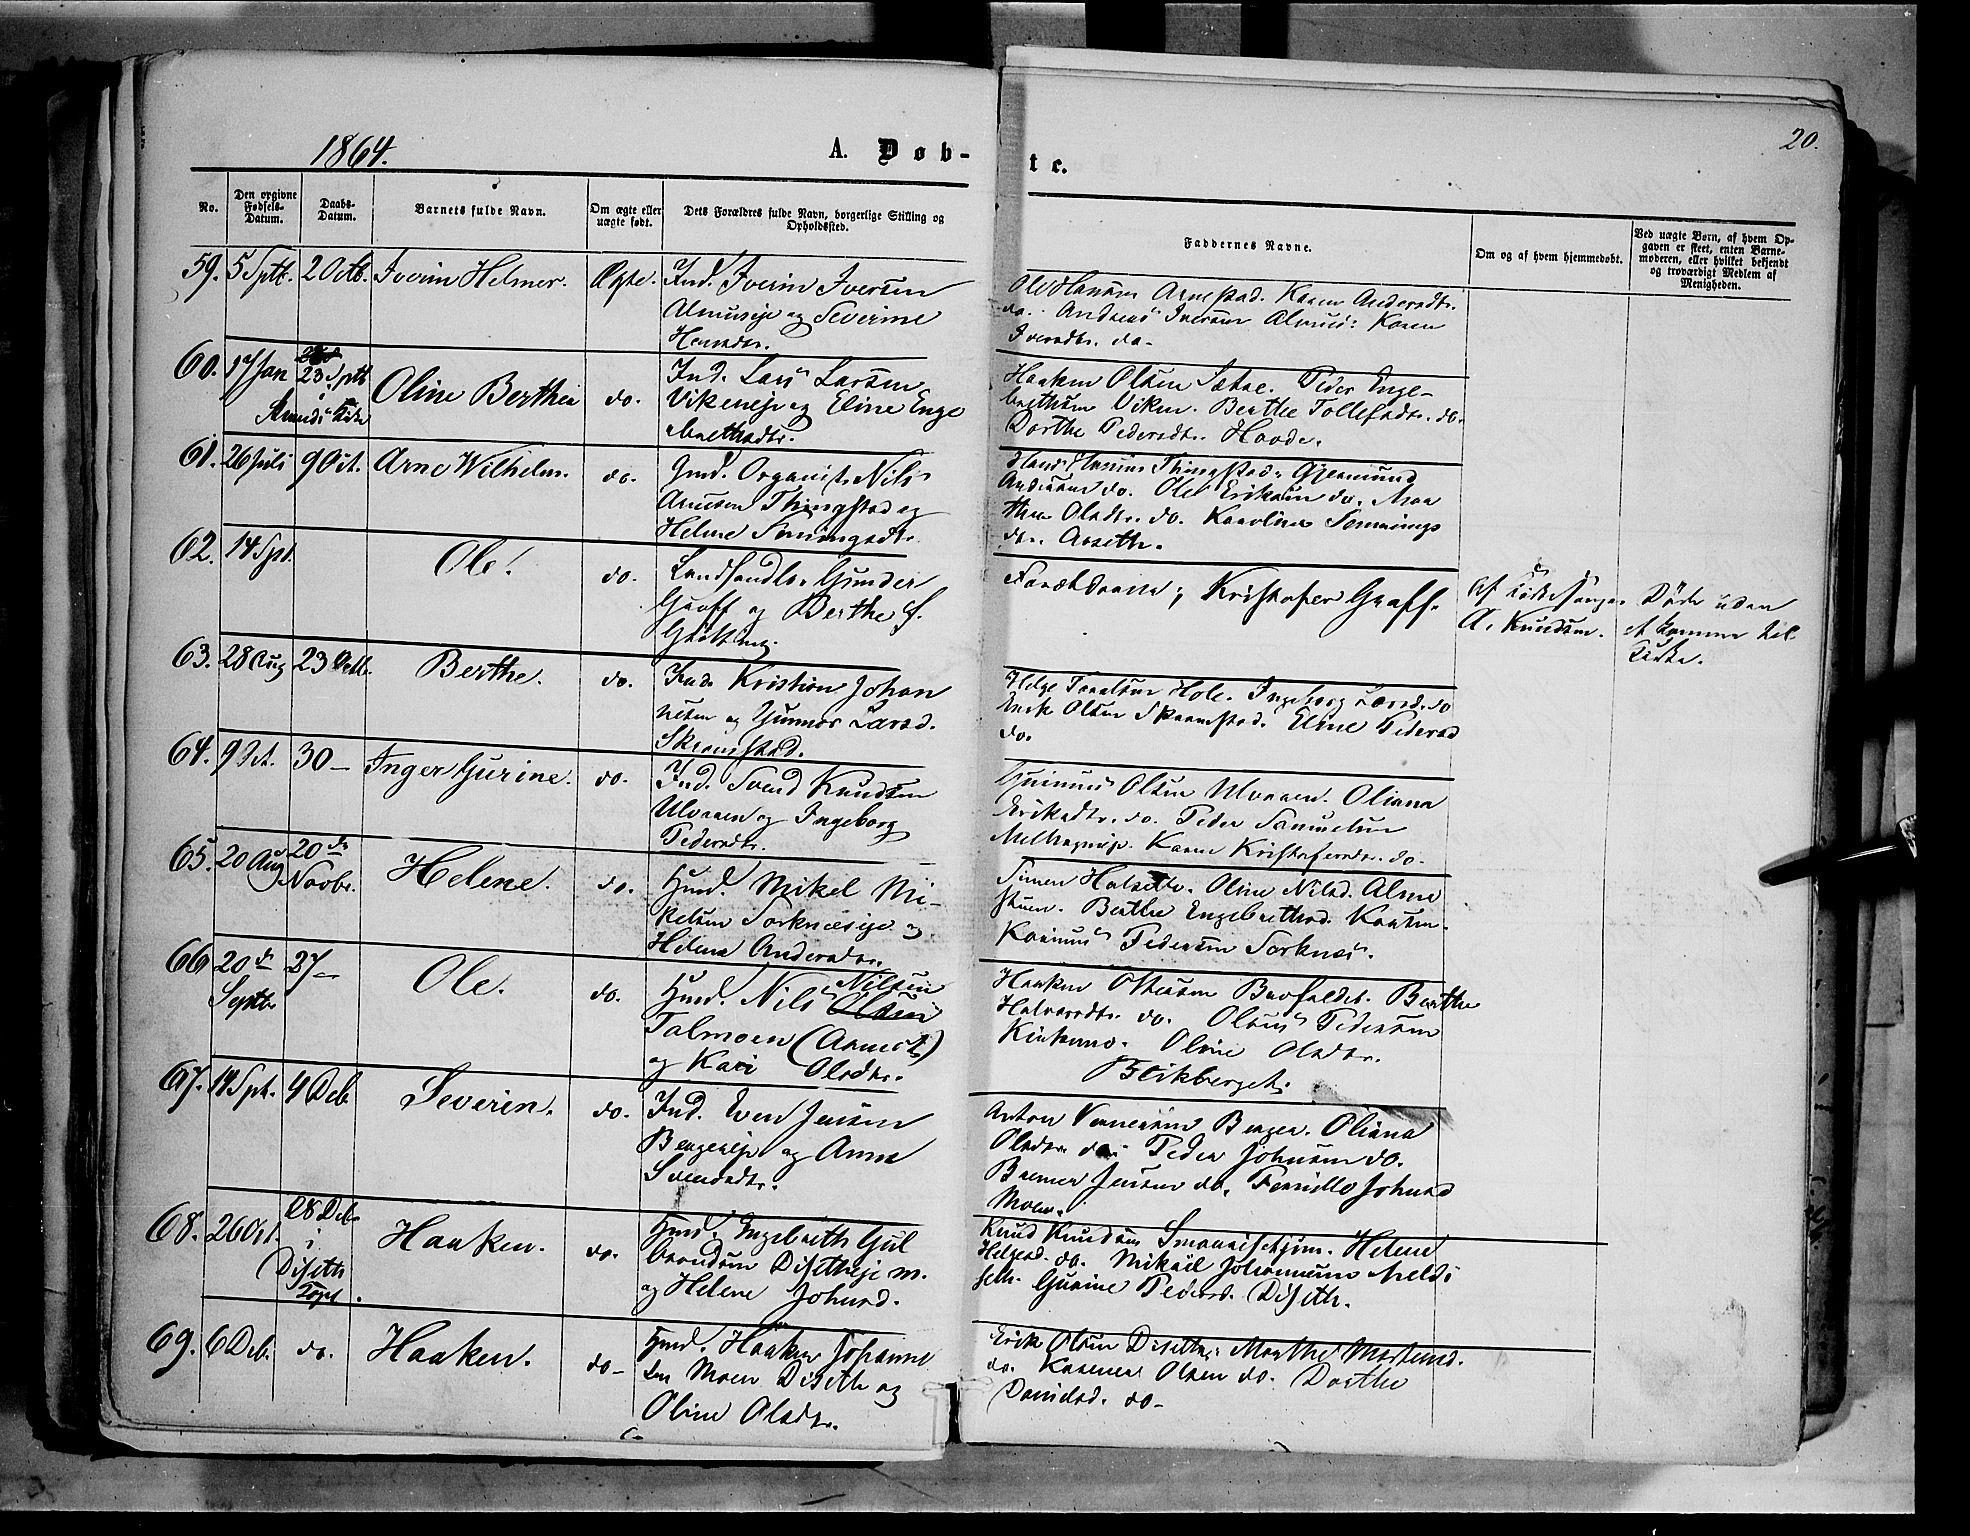 1864.
A. Døb-
te.
20.
No.
Den opgivne Fødsels-Datum.
Daabs-Datum.
Barnets fulde Navn.
Om ægte eller uægte født.
Dets Forældres fulde Navn, borgerlige Stilling og Opholdssted.
Faddernes Navne.
Om og af hvem hjemmedøbt.
Ved uægte Børn, af hvem Opgaven er skeet, enten Barnemoderen, eller hvilket bekjendt og troværdigt Medlem af Menigheden.
59. 5 Sptb. 2 Octb. Iverin Helmer. Ægte. Ind. Iverin Iversen
og Severine
Hansdtr.
Ole Hansen Arnestad. Karen Andersdtr.
do. Andreas Iversen Karen
Iversdtr. do.
60. 17 Jan 23 Sptb
i
Oline Berthea do. Ind. Lars Larsen
Vikeneje og Eline Enge
brethsdtr.
Haaken Olsen Sætre. Peder Enge-
brethsen Viken. Berthe Tollefsdtr. do.
Dorthe Pedersdtr. Haade.
61. 26 Juli 9 Oct. Arne Wilhelm. do. Gmd. Organist Nils
Arnesen Thingstad og
Helene Semingsdtr.
Hans Hansen Thingstad. Gjermund
Andersen do. Ole Eriksen do. Mar
the Olsdtr. do. Karoline Semmings
dtr. Arseth.
62. 14 Spt. Ole! do. Landhandler Gunder
Graff og Berthe J.
Grøtting.
Forældrene; Kristofer Graff.
Af Kirkesanger
A. Knudsen.
Døde uden
at komme til
Kirke.
63. 28 Aug 23 Octb. Berthe. do. Ind. Kristian Johan
nesen og Gunnor Larsd.
Skramstad.
Helge Taralsen Hole. Ingeborg Larsd. do
Erik Olsen Skramstad. Eline Pedersd
do.
64. 9 Oct. 30 — Inger Gurine. do. Ind. Svend Knudsen
Ulvaaen og Ingeborg
Pedersdtr.
Gunnus Olsen Ulvaaen. Oliana
Eriksdtr. do. Peder Samuelsen
Karen Kristofersdtr. do.
65. 20 Aug 20de
Novbr. Helene. do. Hmd. Mikel Mi-
kelsen Sorknæseje og
Helene Andersdtr.
Simen Halseth. Oline Nilsd. Alme
stuen. Berthe Engebrethsd.
Karinus Pedersen Sorknæs.
66 20de
Septbr 27 — Ole. do. Hmd. Nils Nilsen
Olsen
Talmoen (Aamot)
og Kari Olsdtr.
Haaken Ottersen Berthe
Halvorsdtr. do. Olaus Pedersen
Kirkemo. Oline Olsdtr.
Bleikberget.
67. 14 Spt. 4 Deb Severin. do. Ind. Even Jensen
Bergereje og Anne
Svendsdtr.
Anton Berger. Oliana
Olsdtr. do. Peder Johnsen do.
Berner Jensen do. Pernille Johnsd
Moen.
68. 26 Oct. 28 Deb.
i
Diseth
Capel. Haaken. do. Hmd. Engebreth Gul
brandsen Disetheje m.
og Helene Johnsd.
Knud Knudsen Helene
Helgesd. do. Mikael Johannesen
seth. Gurine Pedersd. Diseth.
69. 6 Deb. do. Haaken. do — Hmd. Haaken Johanne
sen Moen Diseth og
Oline Olsdtr.
Erik Olsen Diseth. Marthe Mortensd.
do. Olsen do. Dorthe
Danielsd. do —